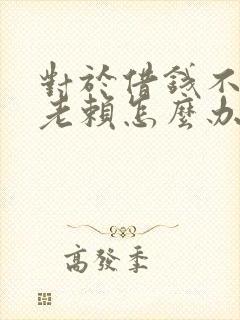 對於借錢不
老賴怎麼办
高發季